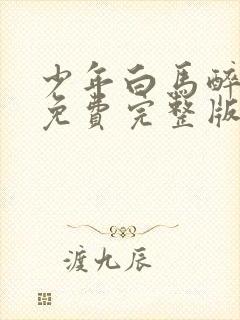 少年白馬醉
免費完整版
渡九辰